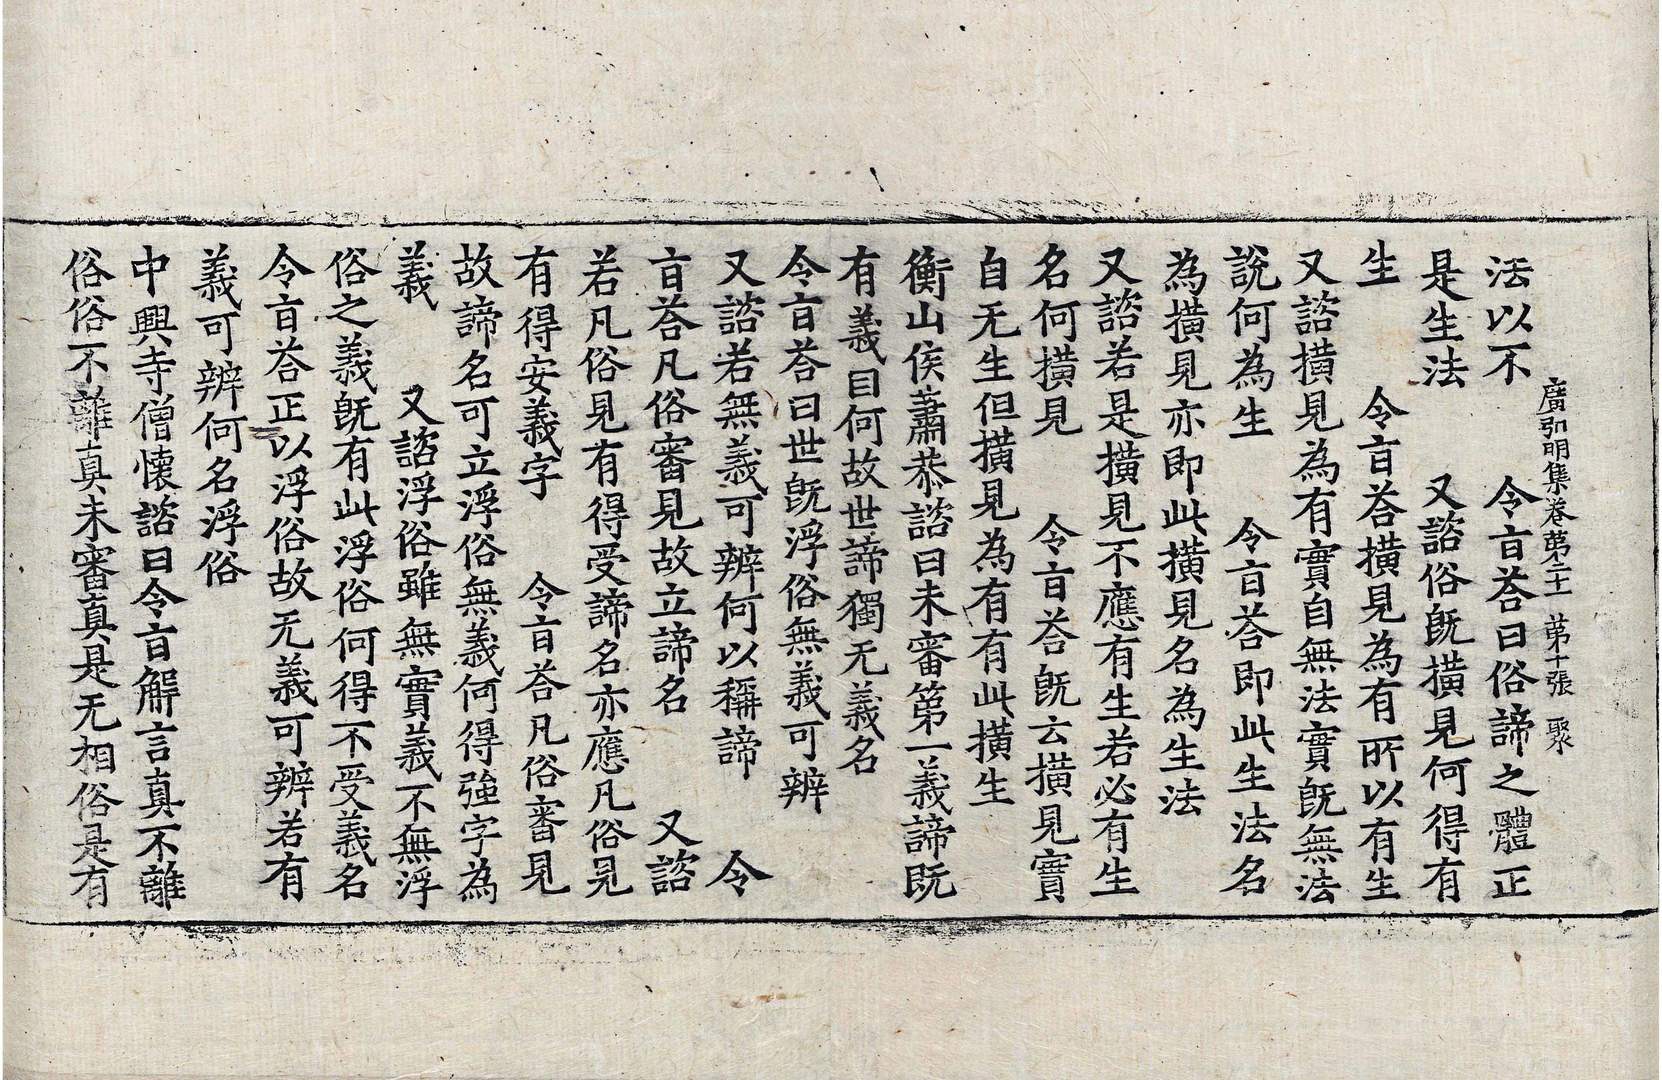 廣弘明集卷第二十一 第十張 聚
法以不 令旨荅曰俗諦之體正
是生法 又諮俗旣橫見何得有
生 令旨荅橫見為有所以有生
又諮橫見為有實自無法實旣無法
說何為生 令旨荅即此生法名
為橫見亦即此橫見名為生法
又諮若是橫見不應有生若必有生
名何橫見 令旨荅旣云橫見實
自无生但橫見為有有此橫生
衡山侯蕭恭諮曰未審第一義諦旣
有義目何故世諦獨无義名
令旨荅曰世旣浮俗無義可辨
又諮若無義可辨何以稱諦 令
旨荅凡俗審見故立諦名 又諮
若凡俗見有得受諦名亦應凡俗見
有得安義字 令旨荅凡俗審見
故諦名可立浮俗無義何得強字為
義 又諮浮俗雖無實義不無浮
俗之義旣有此浮俗何得不受義名
令旨荅正以浮俗故无義可辨若有
義可辨何名浮俗
中興寺僧懷諮曰令旨解言真不離
俗俗不離真未審真是无相俗是有